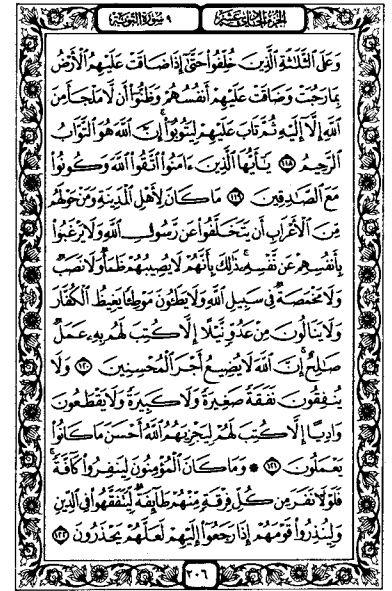 الجزء الحادي عشر ٩ سورة التوبة
وَعَلَى ٱلثَّلَـٰثَةِ ٱلَّذِينَ خُلِّفُوا۟ حَتَّىٰٓ إِذَا ضَاقَتْ عَلَيْهِمُ ٱلْأَرْضُ
بِمَا رَحُبَتْ وَضَاقَتْ عَلَيْهِمْ أَنفُسُهُمْ وَظَنُّوٓا۟ أَن لَّا مَلْجَأَ مِنَ
ٱللَّهِ إِلَّآ إِلَيْهِ ثُمَّ تَابَ عَلَيْهِمْ لِيَتُوبُوٓا۟ ۚ إِنَّ ٱللَّهَ هُوَ ٱلتَّوَّابُ
ٱلرَّحِيمُ ١١٨ يَـٰٓأَيُّهَا ٱلَّذِينَ ءَامَنُوا۟ ٱتَّقُوا۟ ٱللَّهَ وَكُونُوا۟
مَعَ ٱلصَّـٰدِقِينَ ١١٩ مَا كَانَ لِأَهْلِ ٱلْمَدِينَةِ وَمَنْ حَوْلَهُم
مِّنَ ٱلْأَعْرَابِ أَن يَتَخَلَّفُوا۟ عَن رَّسُولِ ٱللَّهِ وَلَا يَرْغَبُوا۟
بِأَنفُسِهِمْ عَن نَّفْسِهِۦ ۚ ذَٰلِكَ بِأَنَّهُمْ لَا يُصِيبُهُمْ ظَمَأٌ وَلَا نَصَبٌ
وَلَا مَخْمَصَةٌ فِى سَبِيلِ ٱللَّهِ وَلَا يَطَـُٔونَ مَوْطِئًا يَغِيظُ ٱلْكُفَّارَ
وَلَا يَنَالُونَ مِنْ عَدُوٍّ نَّيْلًا إِلَّا كُتِبَ لَهُم بِهِۦ عَمَلٌ
صَـٰلِحٌ ۚ إِنَّ ٱللَّهَ لَا يُضِيعُ أَجْرَ ٱلْمُحْسِنِينَ ١٢٠ وَلَا
يُنفِقُونَ نَفَقَةً صَغِيرَةً وَلَا كَبِيرَةً وَلَا يَقْطَعُونَ
وَادِيًا إِلَّا كُتِبَ لَهُمْ لِيَجْزِيَهُمُ ٱللَّهُ أَحْسَنَ مَا كَانُوا۟
يَعْمَلُونَ ١٢١ ۞ وَمَا كَانَ ٱلْمُؤْمِنُونَ لِيَنفِرُوا۟ كَآفَّةً ۚ
فَلَوْلَا نَفَرَ مِن كُلِّ فِرْقَةٍ مِّنْهُمْ طَآئِفَةٌ لِّيَتَفَقَّهُوا۟ فِى ٱلدِّينِ
وَلِيُنذِرُوا۟ قَوْمَهُمْ إِذَا رَجَعُوٓا۟ إِلَيْهِمْ لَعَلَّهُمْ يَحْذَرُونَ ١٢٢
٢٠٦